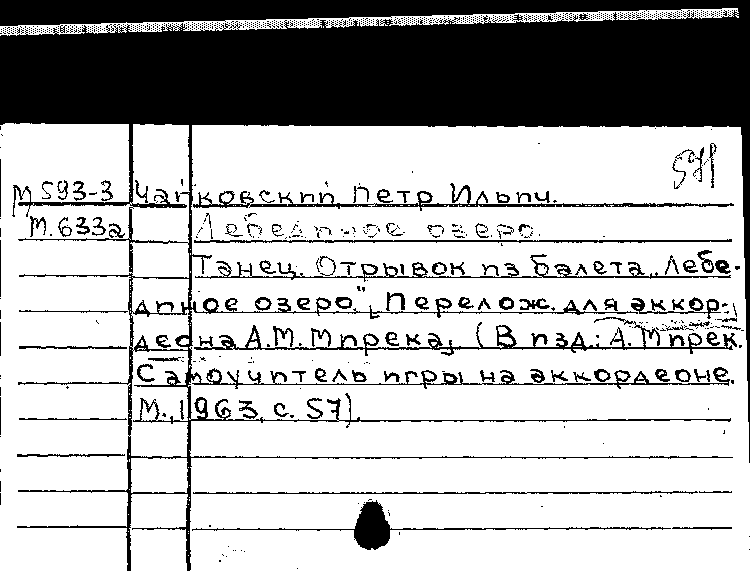 571
М593-3 Чайковский, Петр Ильич.
М.633а Лебединое озеро.
Танец. Отрывок из балета „Лебе-
диное озеро". [Перелож. для аккор-
деона А.М. Мирека] (В изд.: А. Мирек.
Самоучитель игры на аккордеоне.
М., 1963, с. 57).